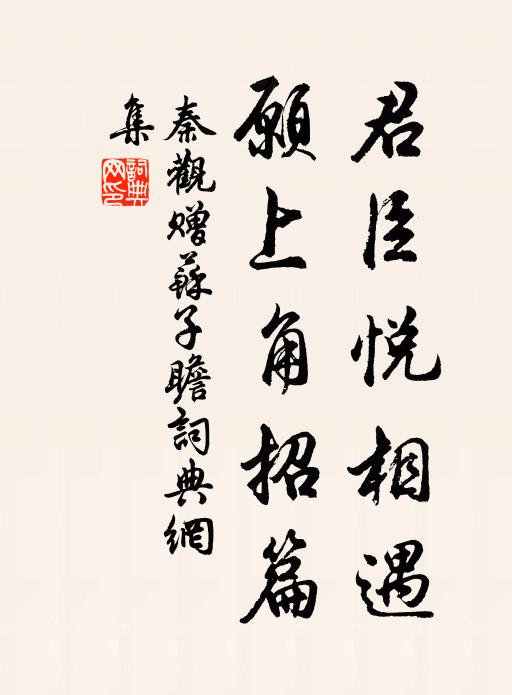 君臣悅相遇
願上角招篇
秦觀贈蘇子瞻詞典網
集
詞典網印